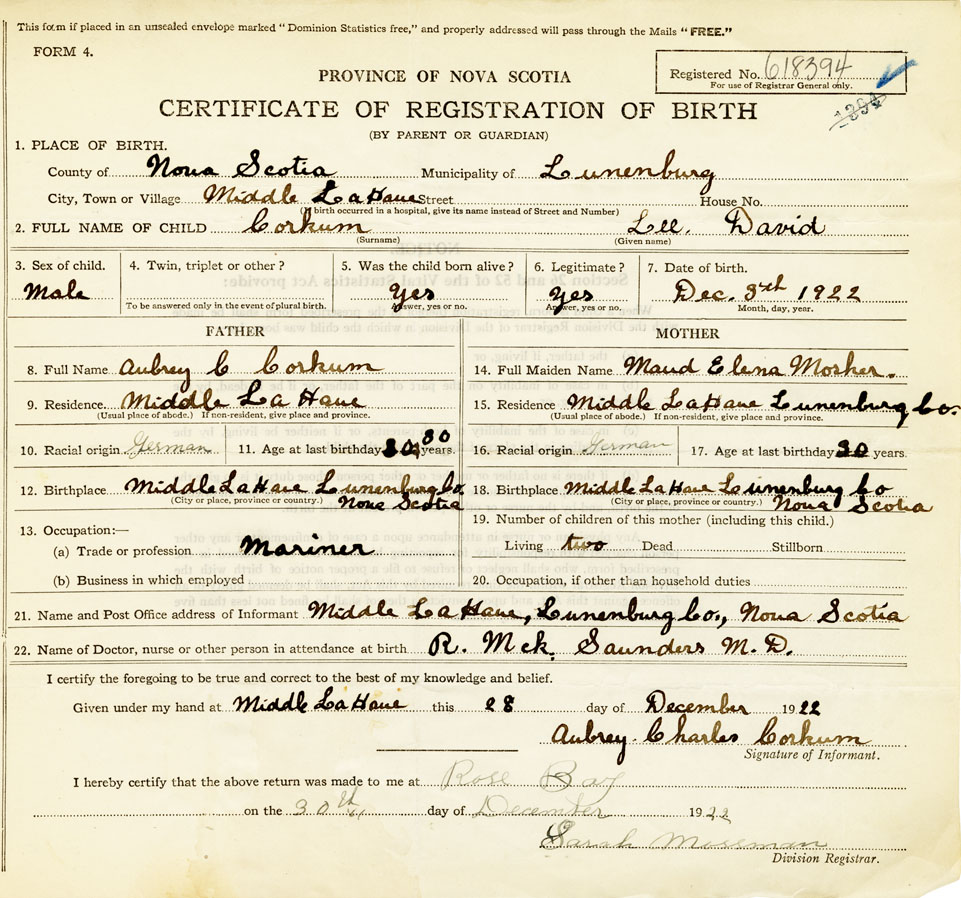 This form if placed in an unsealed envelope marked "Dominion Statistics free," and properly addressed will pass through the Mails "FREE."
FORM 4.
Registered No. 618394
For use of Registrar General only.
1394
PROVINCE OF NOVA SCOTIA
CERTIFICATE OF REGISTRATION OF BIRTH
(BY PARENT OR GUARDIAN)
1. PLACE OF BIRTH.
County of Nova Scotia Municipality of Lunenburg
City, Town or Village Middle LaHave Street House No.
(If birth occurred in a hospital, give its name instead of Street and Number)
2. FULL NAME OF CHILD Corkum Lee. David
(Surname) (Given name)
3. Sex of child. 4. Twin, triplet or other? 5. Was the child born alive? 6. Legitimate? 7. Date of birth.
Male Yes Yes Dec. 3rd 1922
To be answered only in the event of plural birth. Answer, yes or no. Answer, yes or no. Month, day, year.
FATHER MOTHER
8. Full Name Aubrey C Corkum 14. Full Maiden Name Maud Elena Mosher.
9. Residence Middle LaHave 15. Residence Middle LaHave Lunenburg Co.
(Usual place of abode.) If non-resident, give place and province. (Usual place of abode.) If non-resident, give place and province.
10. Racial origin German 11. Age at last birthday 30 years. 16. Racial origin German 17. Age at last birthday 30 years.
12. Birthplace Middle LaHave Lunenburg Co. 18. Birthplace Middle LaHave Lunenburg Co
(City or place, province or country.) Nova Scotia (City or place, province or country.) Nova Scotia
13. Occupation:— 19. Number of children of this mother (including this child.)
(a) Trade or profession Mariner Living two Dead Stillborn
(b) Business in which employed 20. Occupation, if other than household duties
21. Name and Post Office address of Informant Middle LaHave, Lunenburg Co., Nova Scotia
22. Name of Doctor, nurse or other person in attendance at birth R. McK. Saunders M.D.
I certify the foregoing to be true and correct to the best of my knowledge and belief.
Given under my hand at Middle LaHave this 28 day of December 1922
Aubrey. Charles Corkum
Signature of Informant.
I hereby certify that the above return was made to me at Rose Bay
on the 30th day of December 1922
Sarah Mossman
Division Registrar.